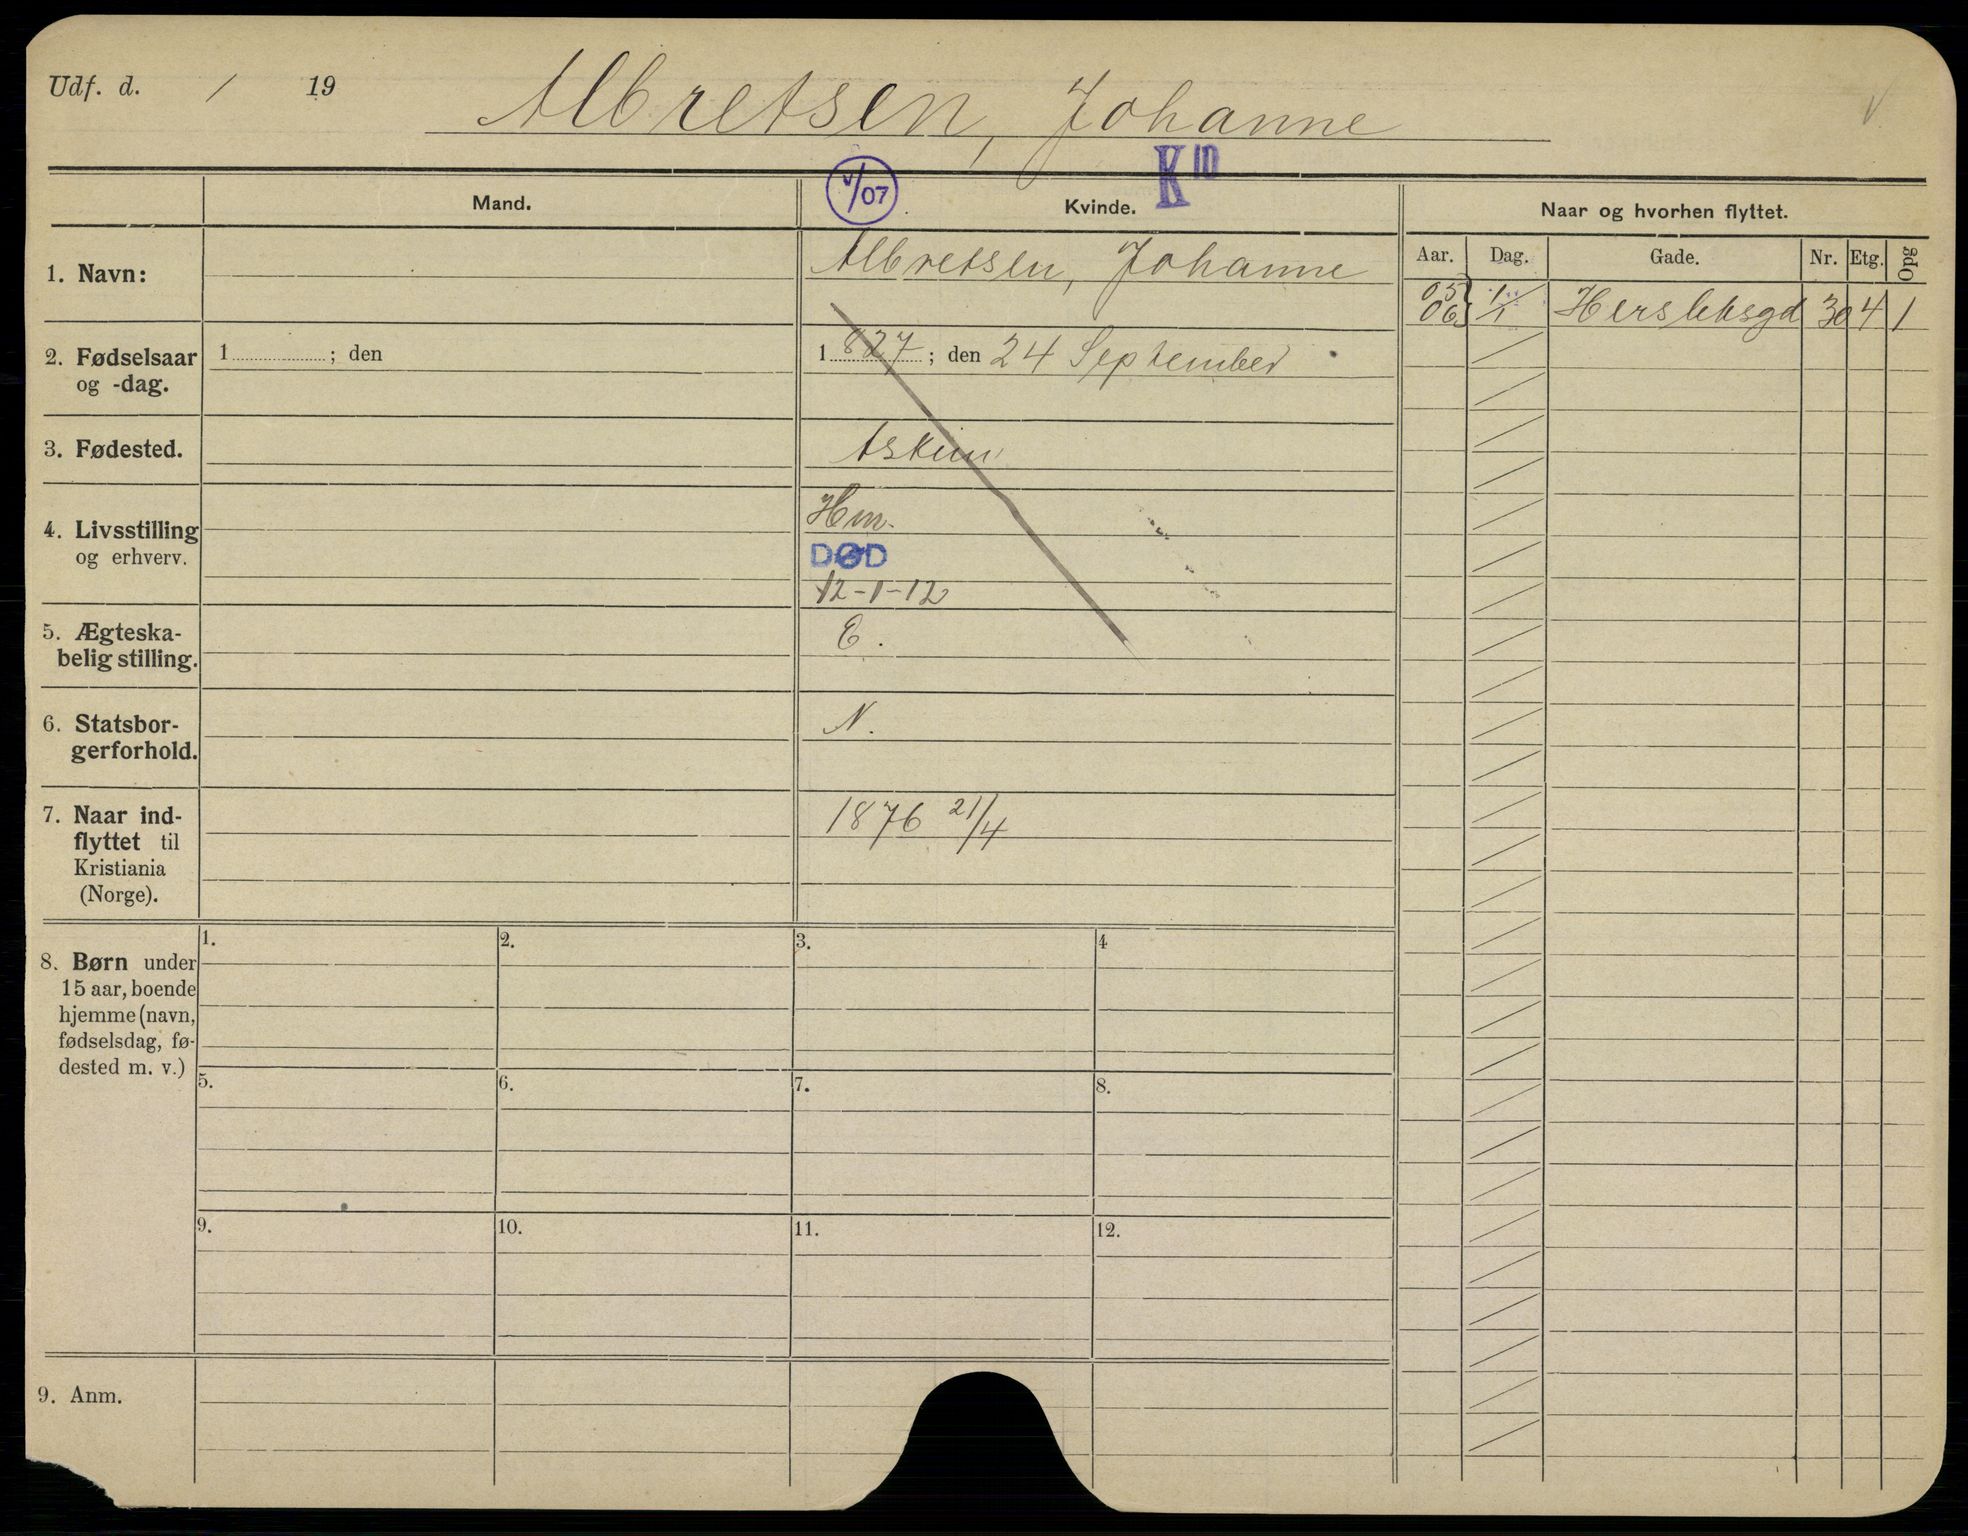 Udf. d. / 19
Albretsen, Johanne
V
V/07
K 10
Mand.
Kvinde.
Naar og hvorhen flyttet.
Aar. Dag. Gade. Nr. Etg. Opg
05 06 } 1/1 Herslebsgd 30 4 1
1. Navn:
Albretsen, Johanne
2. Fødselsaar
og -dag.
1 ; den
1827 ; den 24 September
3. Fødested.
Askim
4. Livsstilling
og erhverv.
Hm.
DØD
12-1-12
5. Ægteska-
belig stilling.
E.
6. Statsbor-
gerforhold.
N.
7. Naar ind-
flyttet til
Kristiania
(Norge).
1876 21/4
8. Børn under
15 aar, boende
hjemme (navn,
fødselsdag, fø-
dested m. v.)
1. 2. 3. 4
5. 6. 7. 8.
9. 10. 11. 12.
9. Anm.